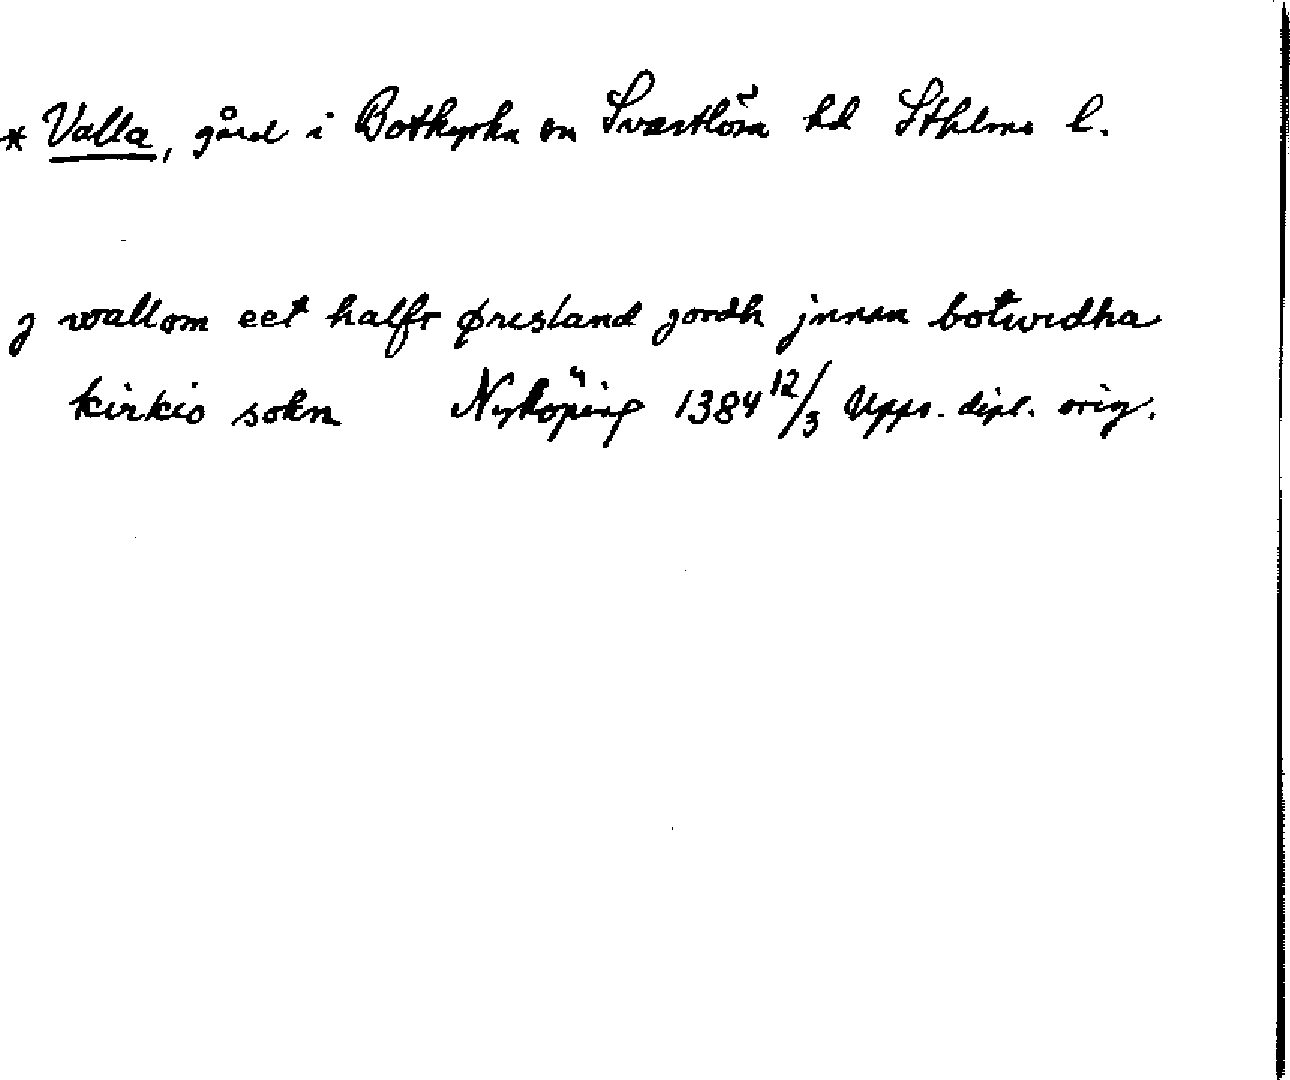 * Valla, gård i Botkyrka sn Svartlösa hd Sthlms l.
j wallom eet halfr øresland jordh jnnan botwidha
kirkio sokn Nyköping 1384 12/3 Upps. dipl. orig.